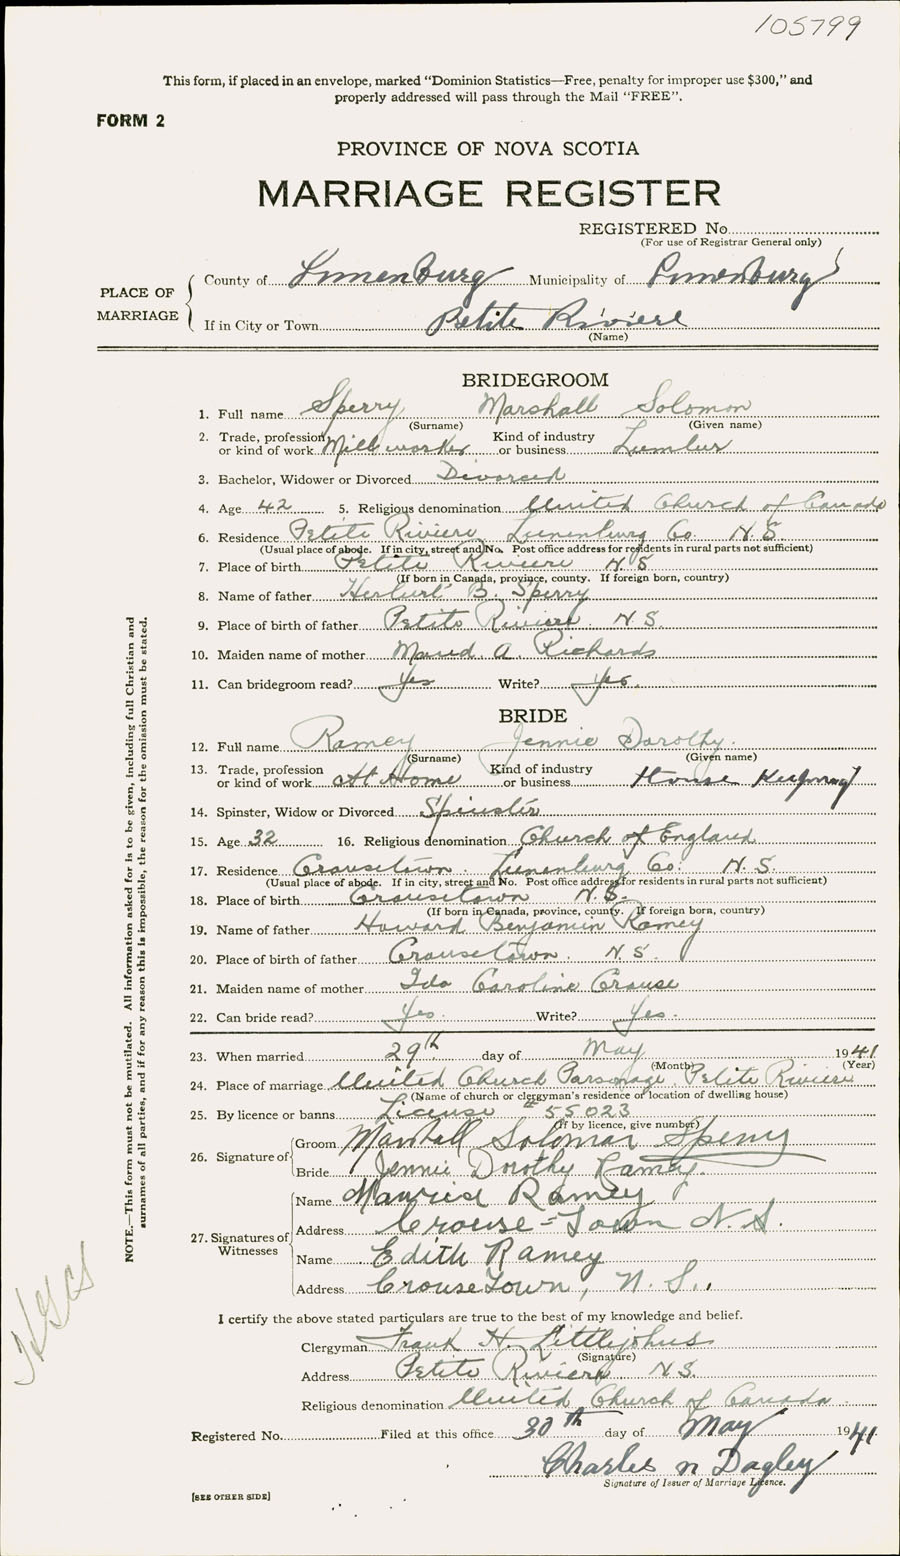 105799
This form, if placed in an envelope, marked “Dominion Statistics—Free, penalty for improper use $300,” and
properly addressed will pass through the Mail “FREE”.
FORM 2
PROVINCE OF NOVA SCOTIA
MARRIAGE REGISTER
REGISTERED No
(For use of Registrar General only)
PLACE OF MARRIAGE
County of Lunenburg Municipality of Lunenburg
If in City or Town Petite Riviere
(Name)
BRIDEGROOM
1. Full name Sperry Marshall Solomon
(Surname) (Given name)
2. Trade, profession or kind of work Mill worker Kind of industry or business Lumber
3. Bachelor, Widower or Divorced Divorced
4. Age 42 5. Religious denomination United Church of Canada
6. Residence Petite Riviere Lunenburg Co. N.S.
(Usual place of abode. If in city, street and No. Post office address for residents in rural parts not sufficient)
7. Place of birth Petite Riviere N.S
(If born in Canada, province, county. If foreign born, country)
8. Name of father Herbert B. Sperry
9. Place of birth of father Petite Riviere. N.S.
10. Maiden name of mother Maud. A. Richards
11. Can bridegroom read? Yes Write? Yes.
BRIDE
12. Full name Ramey Jennie Dorothy.
(Surname) (Given name)
13. Trade, profession or kind of work At Home Kind of industry or business House Keeping
14. Spinster, Widow or Divorced Spinster
15. Age 32 16. Religious denomination Church of England
17. Residence Crousetown. Lunenburg Co. N.S.
(Usual place of abode. If in city, street and No. Post office address for residents in rural parts not sufficient)
18. Place of birth Crousetown N.S.
(If born in Canada, province, county. If foreign born, country)
19. Name of father Howard Benjamin Ramey
20. Place of birth of father Crousetown. N.S.
21. Maiden name of mother Ida Caroline Crouse
22. Can bride read? Yes. Write? Yes.
23. When married 29th day of May 1941
(Month) (Year)
24. Place of marriage United Church Parsonage, Petite Riviere
(Name of church or clergyman's residence or location of dwelling house)
25. By licence or banns License #55023
(If by licence, give number)
26. Signature of Groom Marshall Solomon Sperry
Bride Jennie Dorothy Ramey.
27. Signatures of Witnesses Name Maurice Ramey
Address Crouse-Town N.S.
Name Edith Ramey
Address CrouseTown, N.S.,
I certify the above stated particulars are true to the best of my knowledge and belief.
Clergyman Frank H. Littlejohns
(Signature)
Address Petite Riviere. N.S.
Religious denomination United Church of Canada
Registered No. Filed at this office 30th day of May 1941
Charles N Dagley
Signature of Issuer of Marriage Licence.
[SEE OTHER SIDE]
NOTE.—This form must not be mutilated. All information asked for is to be given, including full Christian and
surnames of all parties, and if for any reason this is impossible, the reason for the omission must be stated.